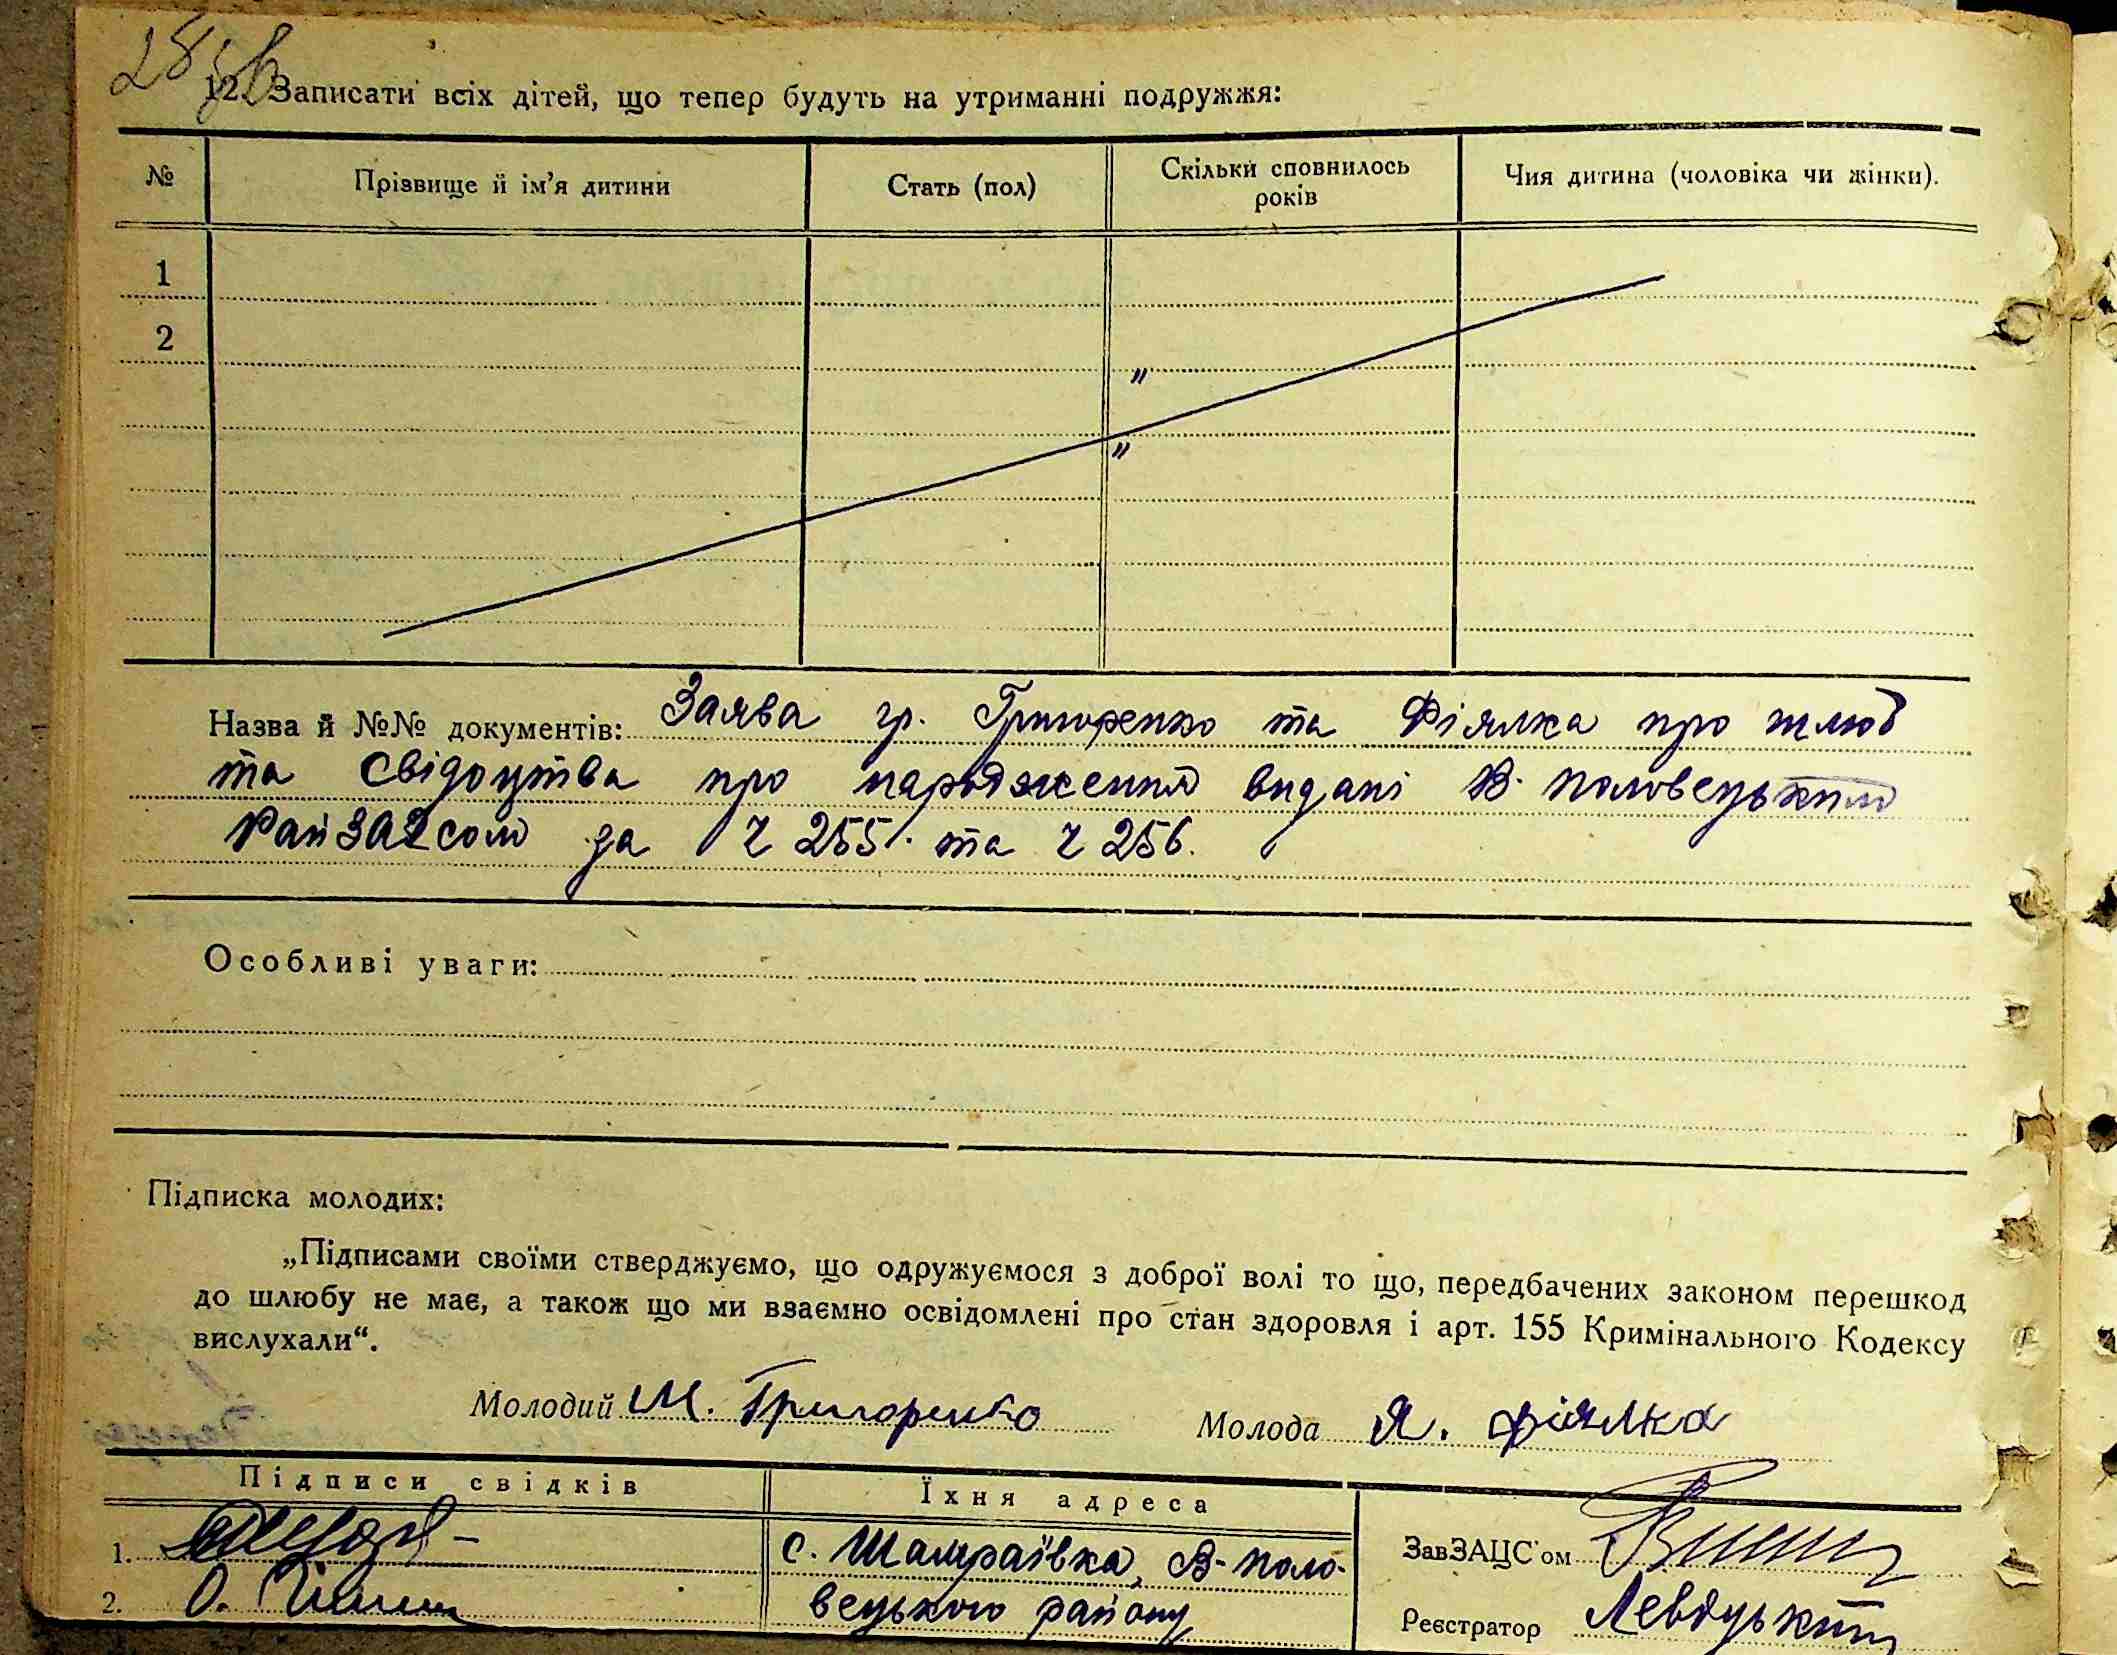 12. Записати всіх дітей, що тепер будуть на утриманні подружжя:
№ Прізвище й ім’я дитини Стать (пол) Скільки сповнилось років Чия дитина (чоловіка чи жінки).
1
2
"
"
Назва й №№ документів: Заява гр. Григоренко та Фіялка про шлюб
та свідоцтва про народження видані В. Половецьким
РайЗАГсом за ч 255. та ч 256.
Особливі уваги:
Підписка молодих:
„Підписами своїми стверджуємо, що одружуємося з доброї волі то що, передбачених законом перешкод
до шлюбу не має, а також що ми взаємно освідомлені про стан здоровля і арт. 155 Кримінального Кодексу
вислухали“.
Молодий М. Григоренко Молода Я. Фіялка
Підписи свідків Їхня адреса
1. с. Шамраївка, В-Поло-
ЗавЗАЦС’ом
2. О. вецького району
Реєстратор Левицький